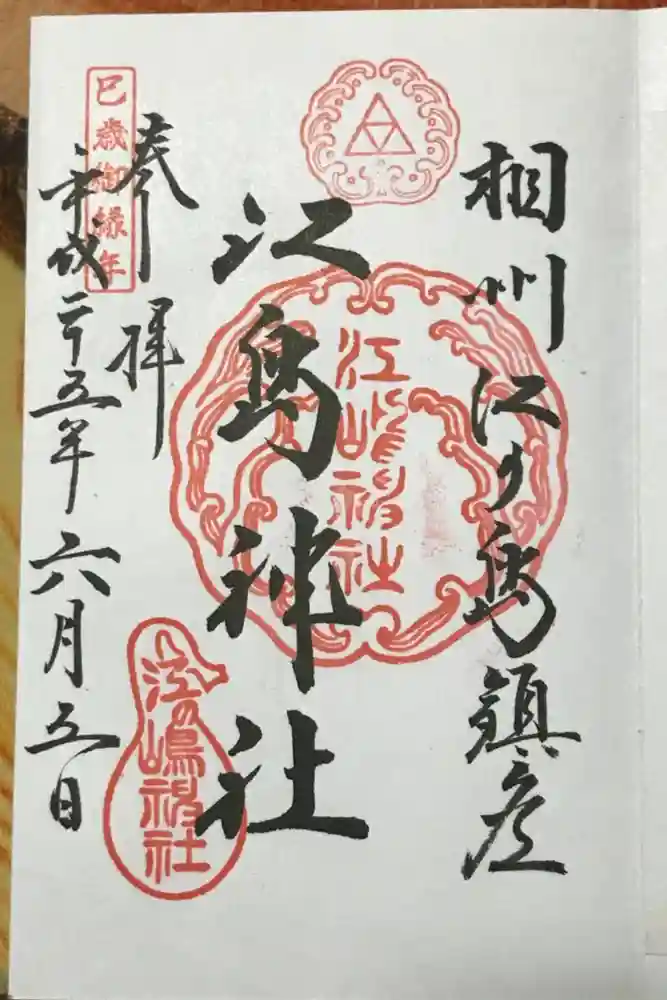 相州江の島鎮座
江島神社
江嶋神社
奉拝
巳歳御縁年
平成二十五年六月五日
江の嶋神社